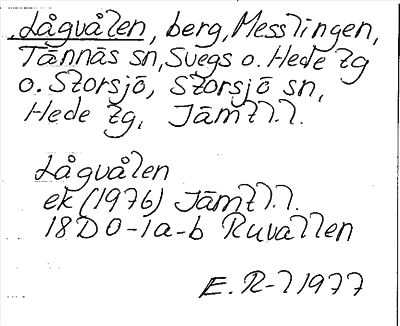 Lågvålen, berg, Messlingen,
Tännäs sn, Svegs o. Hede tg
o. Storsjö, Storsjö sn,
Hede tg, Jämtl.l.
Lågvålen
ek (1976) Jämtl.l.
18D 0-1a-b Ruvallen
E. R-l 1977